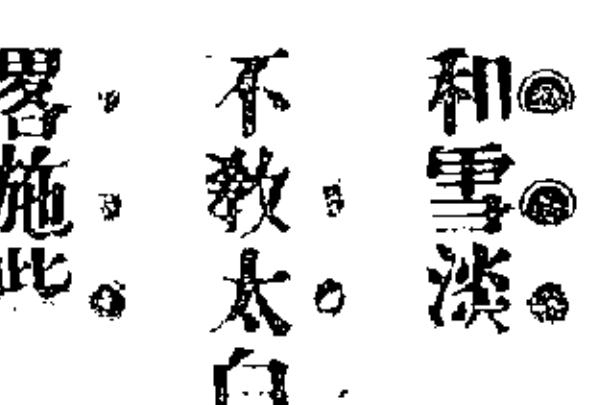 和雪淡
不教太白
畧施此